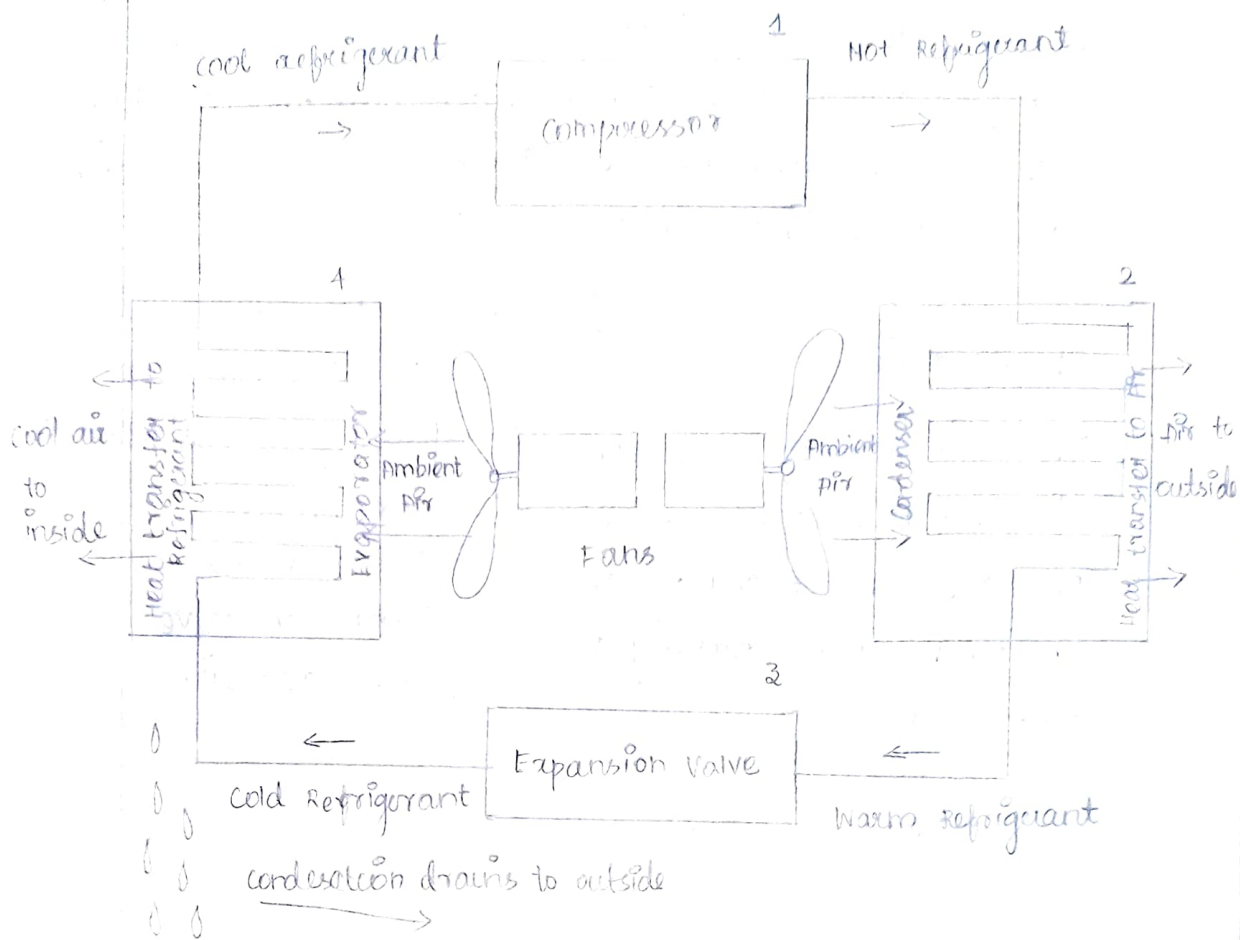 1
Cool refrigerant
Hot Refrigerant
Compressor
4
2
Heat transfer to
Refrigerant
Evaporator
Cool air
to
inside
Ambient
Air
Fans
Ambient
Air
Condenser
Heat transfer to Air
Air to
outside
3
Expansion valve
Cold Refrigerant
Warm Refrigerant
drains to outside